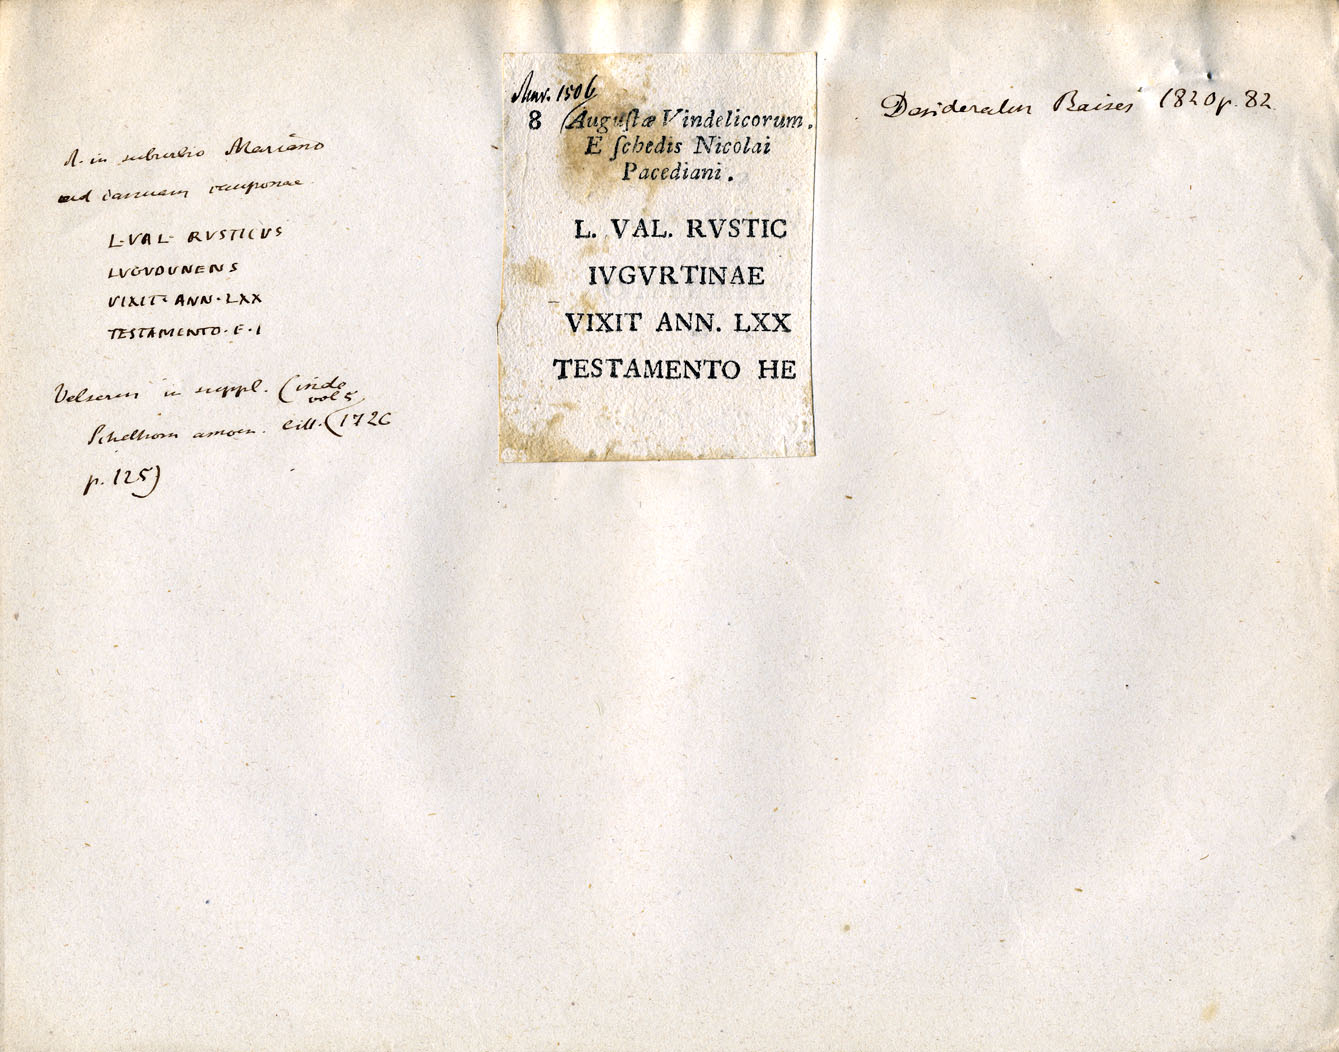 A. in suburbio Mariano
ad ianuam cauponae
L·VAL· RVSTICVS
LVGVDVNENS
VIXIT· ANN·LXX
TESTAMENTO·F·I
Velserus in suppl. (inde
vol 5
Schelhorn amoen. litt. (1726
p. 125)
Mur. 1506
8 Augustæ Vindelicorum.
E ſchedis Nicolai
Pacediani.
L. VAL. RVSTIC
IVGVRTINAE
VIXIT ANN. LXX
TESTAMENTO HE
Desideratur Raiser 1820 p. 82